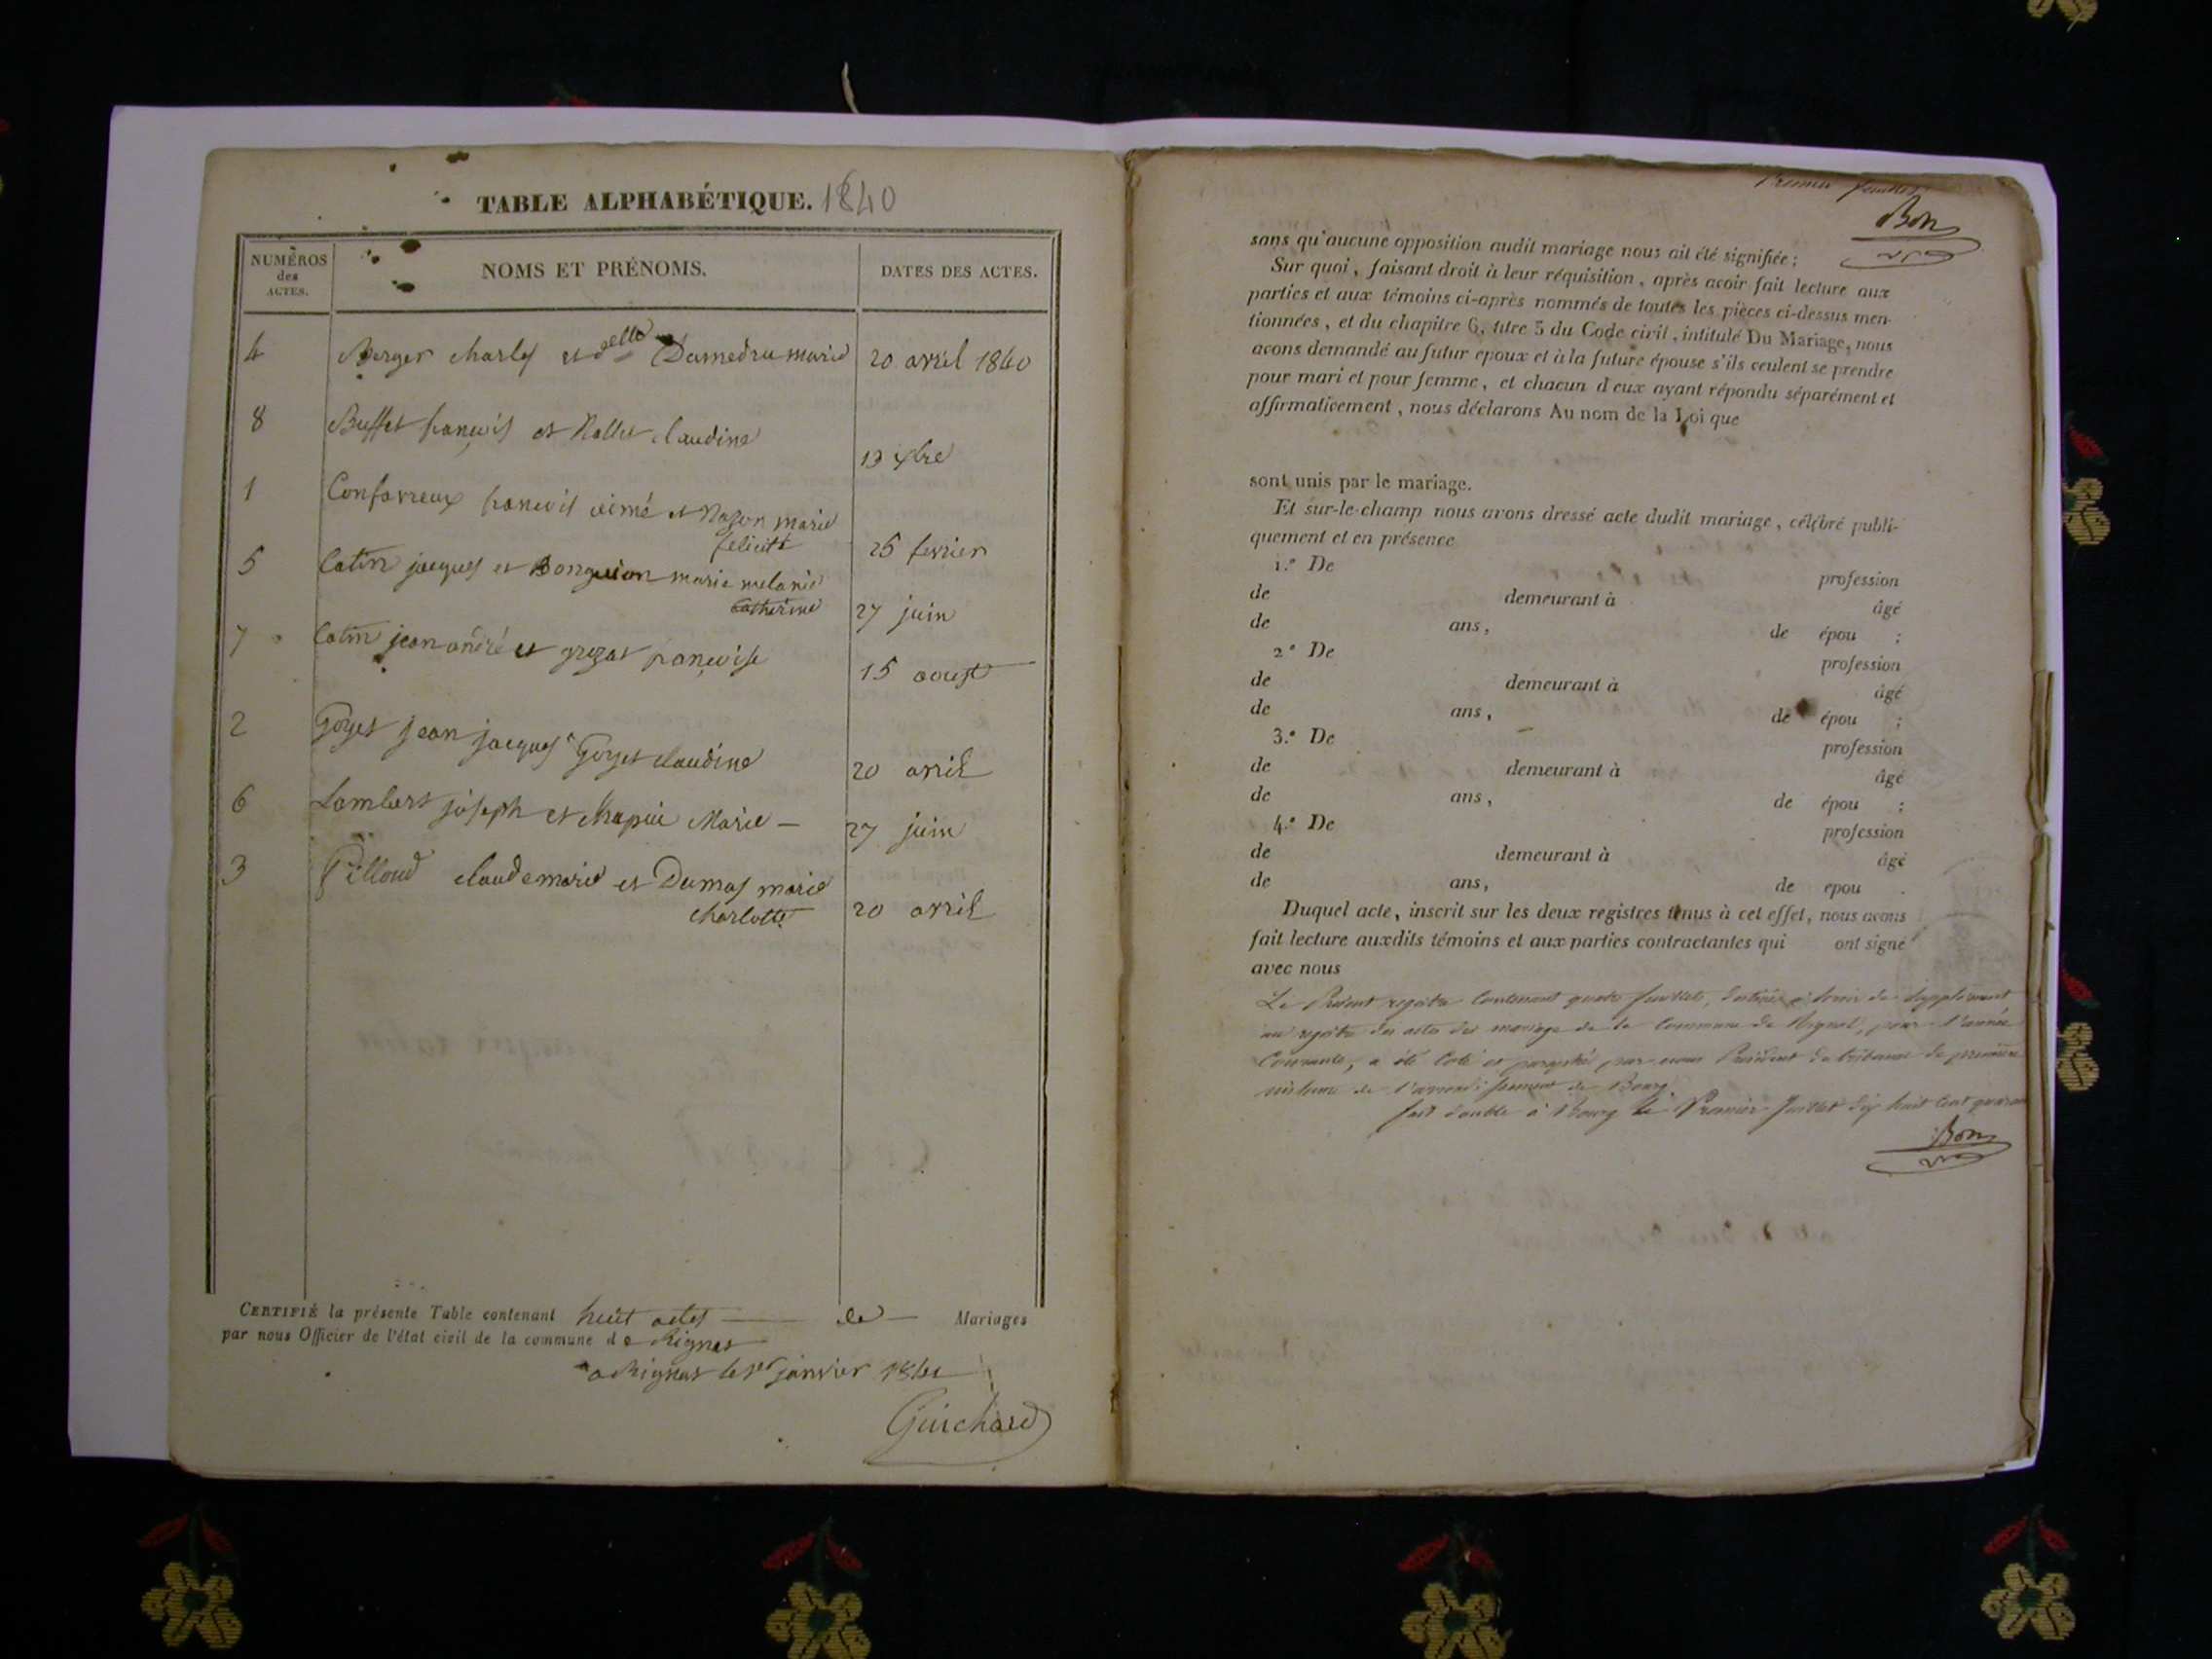 TABLE ALPHABÉTIQUE. 1840
NUMÉROS
des
ACTES.
NOMS ET PRÉNOMS.
DATES DES ACTES.
4 Berger charles et delle Dumedru marie 20 avril 1840
8 Buffet françois et Nallet claudine
19 xbre
1 Confavreux françois aimé et Nazon marie
felicité 25 fevrier
5 Catin jacques et Bonguion marie melanie
Catherine 27 juin
7 Catin jean andré et françoise
15 aoust
2 Goyet jean jacques Goyet claudine
20 avril
6 Lambert joseph et Chapui Marie —
27 juin
3 Pilloud claude marie et Dumas marie
charlotte 20 avril
CERTIFIÉ la présente Table contenant huit actes — de — Mariages
par nous Officier de l'état civil de la commune de Rignat
a Rignat le 1er janvier 1841
Guichard
Premier feuillet
Bon
sans qu'aucune opposition audit mariage nous ait été signifiée ;
Sur quoi, faisant droit à leur réquisition, après avoir fait lecture aux
parties et aux témoins ci-après nommés de toutes les pièces ci-dessus men-
tionnées, et du chapitre 6, titre 5 du Code civil, intitulé Du Mariage, nous
avons demandé au futur epoux et à la future épouse s'ils veulent se prendre
pour mari et pour femme, et chacun d'eux ayant répondu séparément et
affirmativement, nous déclarons Au nom de la Loi que
sont unis par le mariage.
Et sur-le-champ nous avons dressé acte dudit mariage, célébré publi-
quement et en présence
1.° De profession
de demeurant à âgé
de ans, de épou ;
2° De profession
de demeurant à âgé
de ans, de épou ;
3.° De profession
de demeurant à âgé
de ans, de épou ;
4.° De profession
de demeurant à âgé
de ans, de epou .
Duquel acte, inscrit sur les deux registres tenus à cet effet, nous avons
fait lecture auxdits témoins et aux parties contractantes qui ont signé
avec nous
Le Présent registre Contenant quatre feuillets, destiné à servir de Supplément
au registre des actes de mariage de la Commune de Rignat, pour l'année
Courante, a été Coté et paraphé par nous Président du tribunal de première
instance de l'arrondissement de Bourg.
fait double à Bourg le Premier Juillet dix huit Cent quaran
Bon